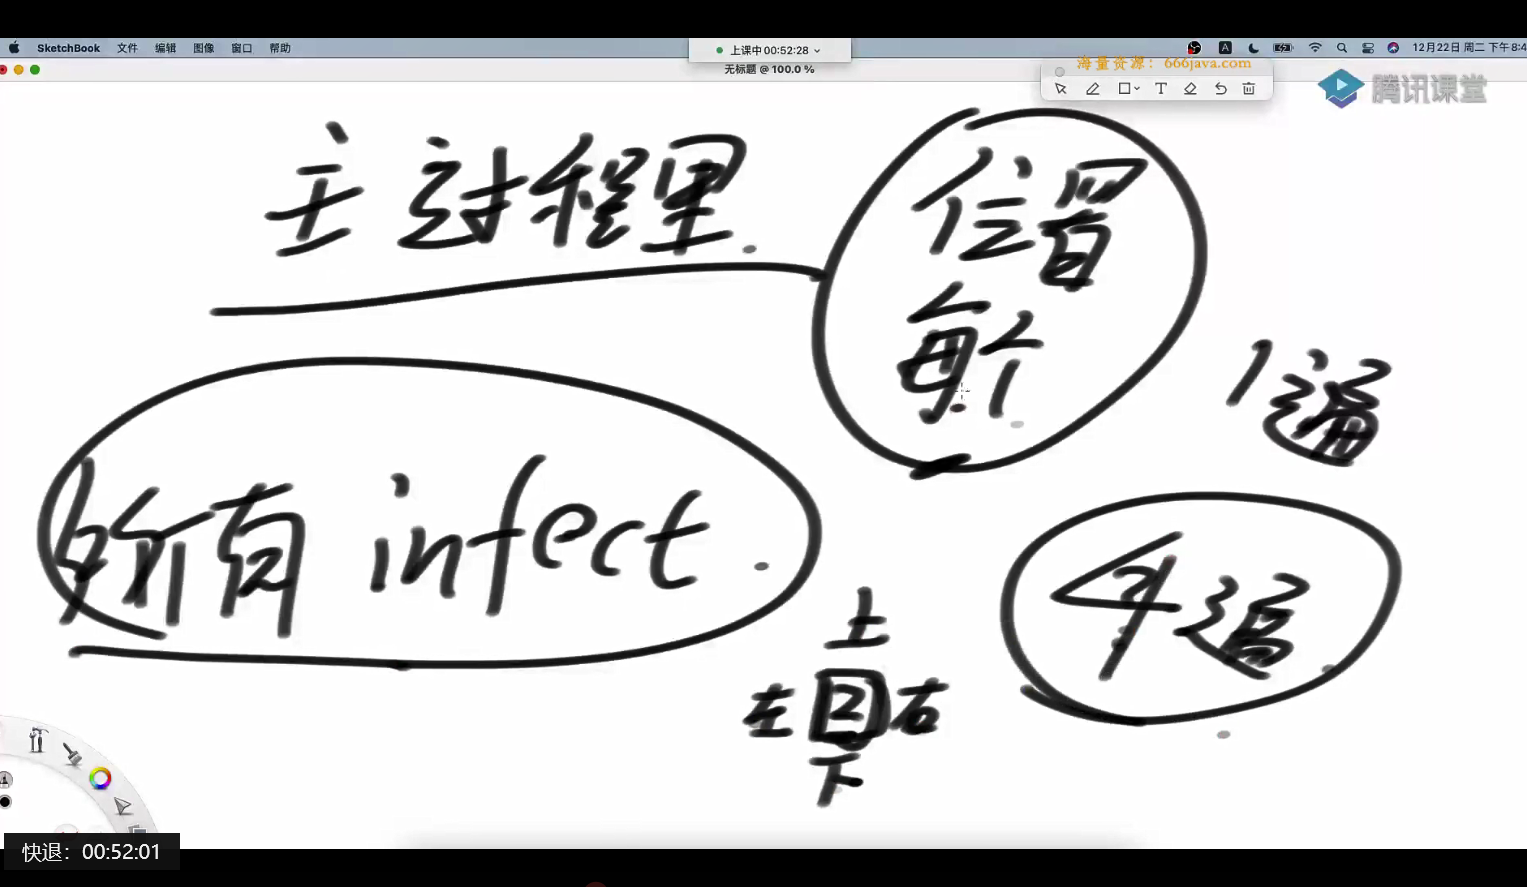 SketchBook 文件 编辑 图像 窗口 帮助
上课中 00:52:28
A
12月22日 周二 下午8:4
无标题 @ 100.0 %
海量资源：666java.com
T
腾讯课堂
主过程里
位置
每个
1遍
所有 infect
4遍
上
左 2 右
下
快退：00:52:01